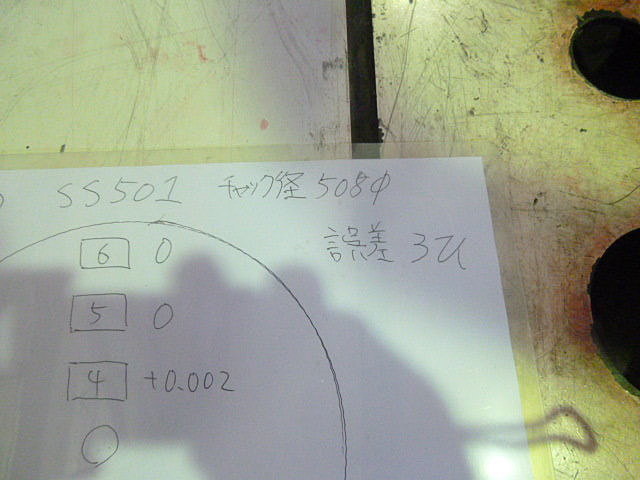 SS501 チャック径 508φ
誤差 3μ
6 0
5 0
4 +0.002